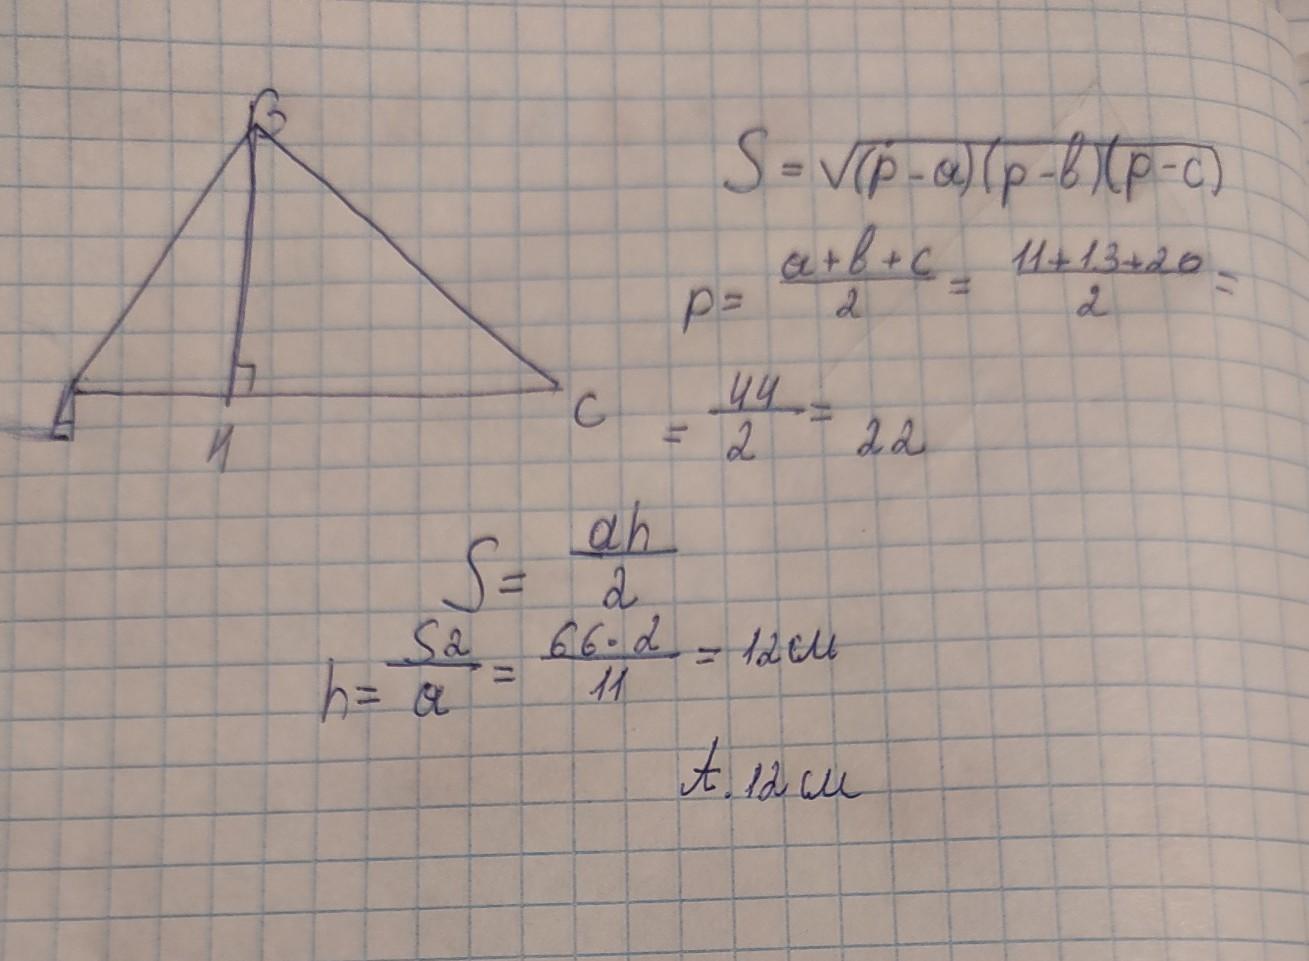 B
S = √(p-a)(p-b)(p-c)
p = a+b+c/2 = 11+13+20/2 =
= 44/2 = 22
C
H
S = ah/2
h = S2/a = 66·2/11 = 12 см
t. 12 см